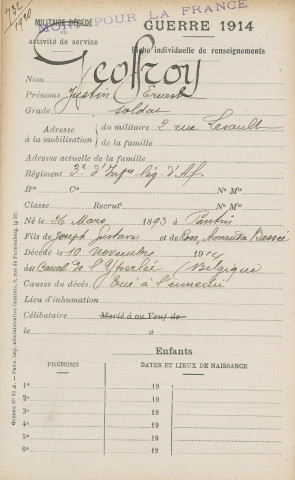 732
1920
MORT POUR LA FRANCE
MILITAIRE DÉCÉDÉ
en
activité de service
GUERRE 1914
Fiche individuelle de renseignements
Nom Geoffroy
Prénoms Justin Ernest
Grade Soldat
Adresse à la mobilisation
du militaire 2 rue Lesault
de la famille
Adresse actuelle de la famille
Régiment 3e d'Infrie lég. d'Af.
Bon Cie N° Mle
Classe Recrut N° Mle
Né le 26 Mars 1893 à Pantin
Fils de Joseph Gustave et de Rose, Amanda
Décédé le 10 novembre 1914
du Canal de l'Yperlée (Belgique
Causes du décès Tué à l'ennemi
Lieu d'inhumation
Célibataire Marié à ou Veuf de
le à
Enfants
PRÉNOMS DATES ET LIEUX DE NAISSANCE
1° 19
2° 19
3° 19
4° 19
5° 19
6° 19